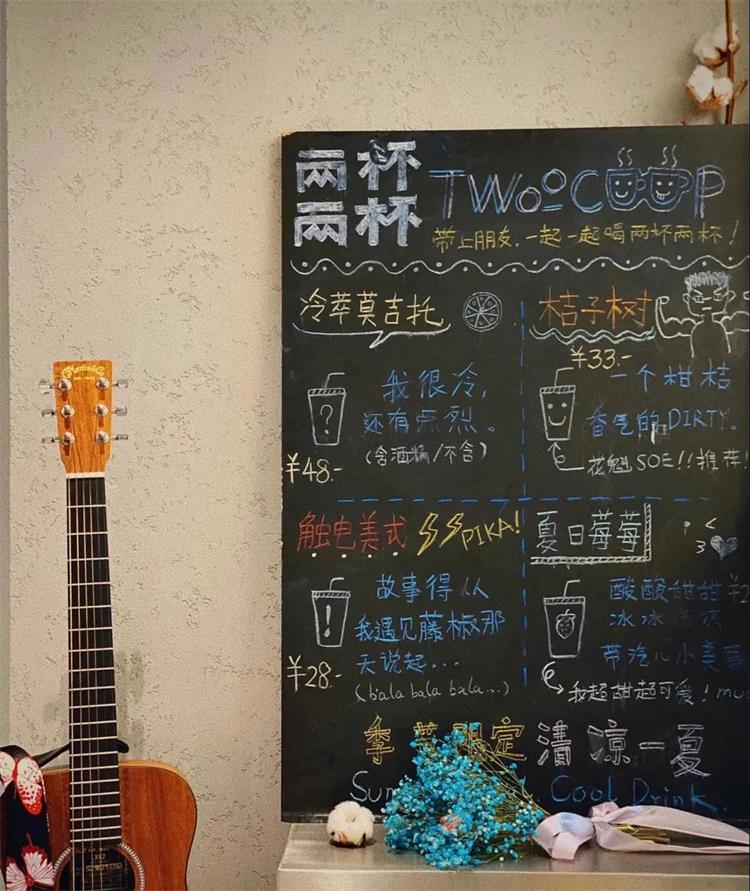 两杯
两杯
TWOOCUP
带上朋友,一起一起喝两杯两杯!
冷萃莫吉托
我很冷,
还有点烈。
(含酒精/不含)
¥48.-
桔子树
¥33.-
一个柑桔
香气的DIRTY。
花魁SOE!!推荐!
触电美式 PIKA!
故事得从
我遇见藤椒那
天说起...
(bala bala bala...)
¥28.-
夏日莓莓
酸酸甜甜
冰冰凉凉
带汽儿小美
我超甜超可爱!mu
季节限定 清凉一夏
Cool Drink.
Martin & Co